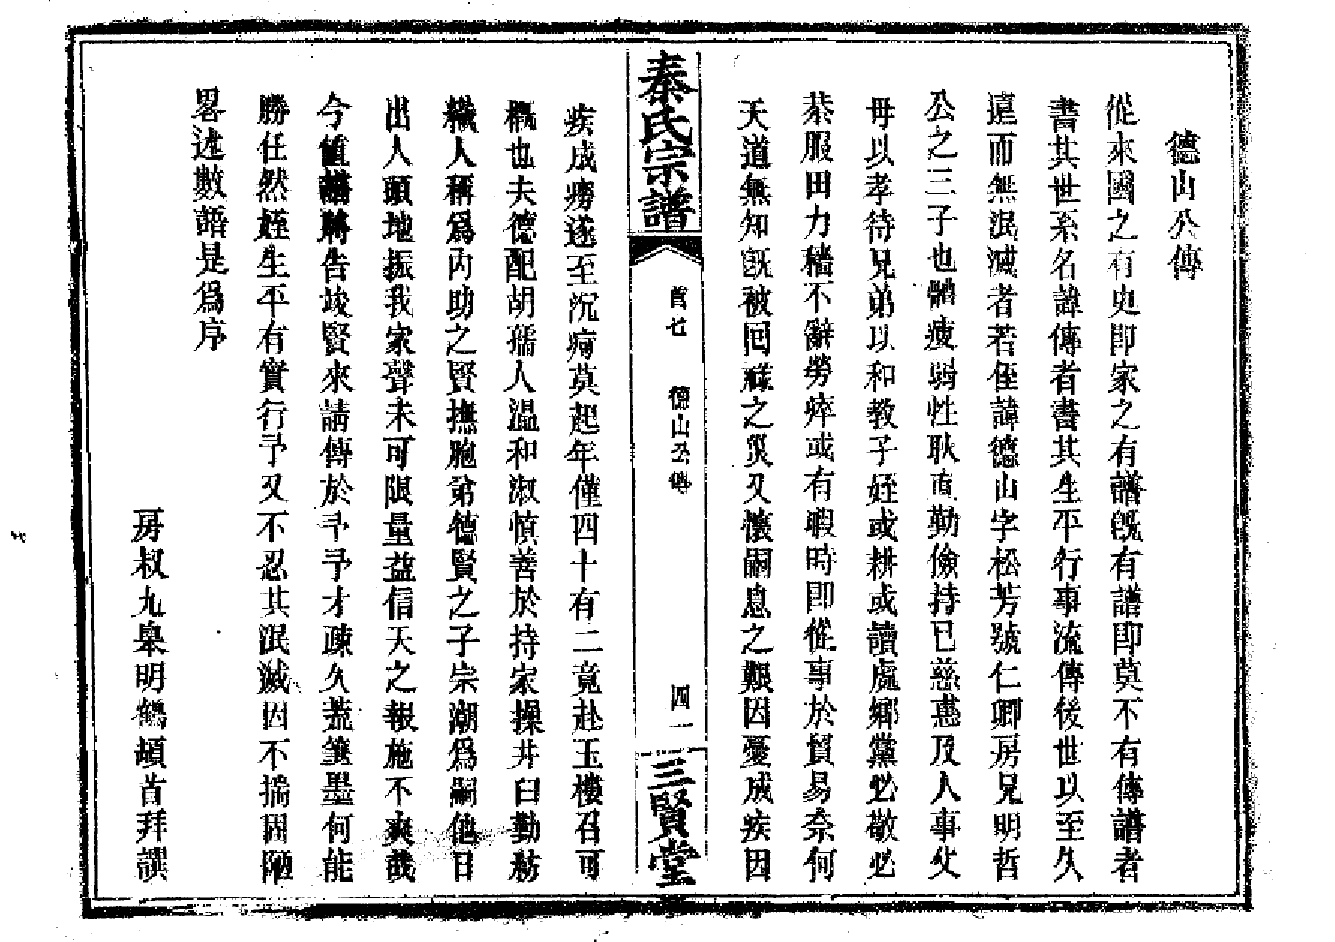 德山公傳
從來國之有史即家之有譜既有譜即莫不有傳譜者
書其世系名諱傳者書其生平行事流傳後世以至久
遠而無泯滅者若侄諱德山字松芳號仁卿房兄明哲
公之三子也體疲弱性耿直勤儉持己慈惠及人事父
母以孝待兄弟以和教子姪或耕或讀處鄉黨必敬必
恭服田力穡不辭勞瘁或有暇時即從事於貿易奈何
天道無知既被回祿之災又懷嗣息之艱因憂成疾因
秦氏宗譜
首七
德山公傳
四一
三賢堂
疾成癆遂至沉疴莫起年僅四十有二竟赴玉樓召可
概也夫德配胡孺人溫和淑慎善於持家操井臼勤紡
織人稱為內助之賢撫胞弟德賢之子宗潮為嗣他日
出人頭地振我家聲未可限量益信天之報施不爽哉
今值譜將告竣賢來請傳於予予才疎久荒筆墨何能
勝任然姪生平有實行予又不忍其泯滅因不揣固陋
畧述數語是為序
房叔九皋明鶴頓首拜譔